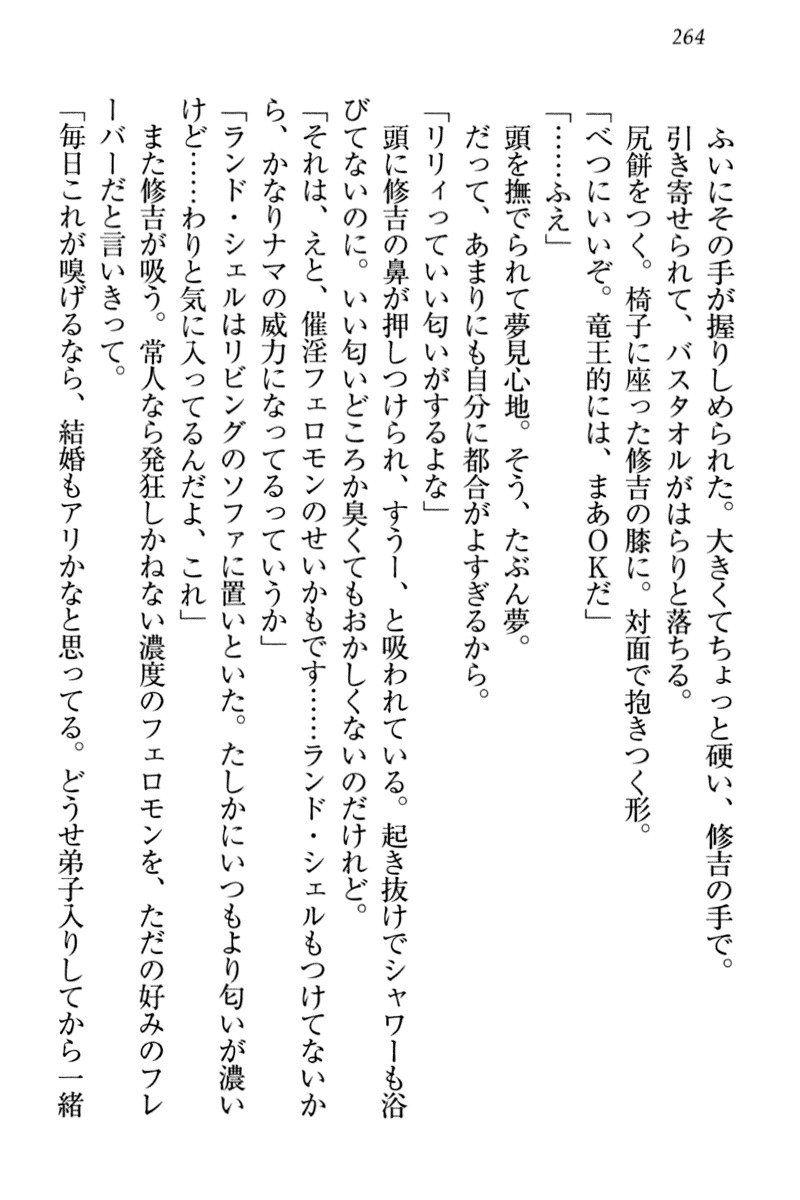 264
ふいにその手が握りしめられた。大きくてちょっと硬い、修吉の手で。
引き寄せられて、バスタオルがはらりと落ちる。
尻餅をつく。椅子に座った修吉の膝に。対面で抱きつく形。
「べつにいいぞ。竜王的には、まあOKだ」
「……ふえ」
頭を撫でられて夢見心地。そう、たぶん夢。
だって、あまりにも自分に都合がよすぎるから。
「リリィっていい匂いがするよな」
頭に修吉の鼻が押しつけられ、すうー、と吸われている。起き抜けでシャワーも浴
びてないのに。いい匂いどころか臭くてもおかしくないのだけれど。
「それは、えと、催淫フェロモンのせいかもです……ランド・シェルもつけてないか
ら、かなりナマの威力になってるっていうか」
「ランド・シェルはリビングのソファに置いといた。たしかにいつもより匂いが濃い
けど……わりと気に入ってるんだよ、これ」
また修吉が吸う。常人なら発狂しかねない濃度のフェロモンを、ただの好みのフレ
ーバーだと言いきって。
「毎日これが嗅げるなら、結婚もアリかなと思ってる。どうせ弟子入りしてから一緒